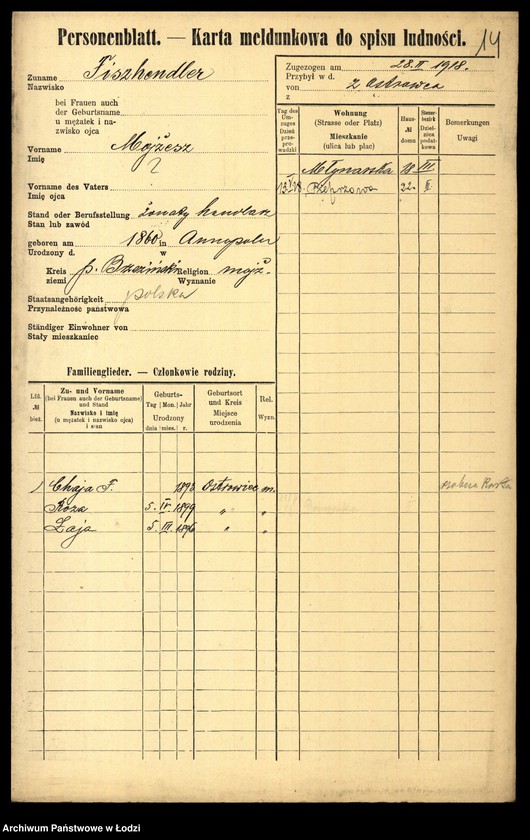 Personenblatt. — Karta meldunkowa do spisu ludności.
14
Zuname Fiszhendler
Nazwisko
bei Frauen auch
der Geburtsname
u mężatek i na-
zwisko ojca
Vorname Mojżesz
Imię
Vorname des Vaters
Imię ojca
Stand oder Berufsstellung żonaty handlarz
Stan lub zawód
geboren am 1860 in Annopolu
Urodzony d. w
Kreis p. Brzeziński Religion mojż.
ziemi Wyznanie
Staatsangehörigkeit polska
Przynależność państwowa
Ständiger Einwohner von
Stały mieszkaniec
Zugezogen am 28.II 1918.
Przybył w d.
von z Ostrowca
z
Tag des Um-zuges Dzień prze-prowadzki
Wohnung (Strasse oder Platz) Mieszkanie (ulica lub plac)
Haus- № domu
Steuer-bezirk Dziel-nica podat-kowa
Bemerkungen Uwagi
Młynarska 18 III
Pieprzowa 22. II
Familienglieder. — Członkowie rodziny.
Lfd. № bież.
Zu- und Vorname (bei Frauen auch der Geburtsname) und Stand Nazwisko i imię (u mężatek i nazwisko ojca) i stan
Geburts- Tag Mon. Jahr Urodzony dnia mies. r.
Geburtsort und Kreis Miejsce urodzenia
Rel. Wyzn.
Chaja F. 1898 Ostrowiec m.
Roza 5. IV. 1899 " "
Łaja 5. III. 1896 " "
Archiwum Państwowe w Łodzi